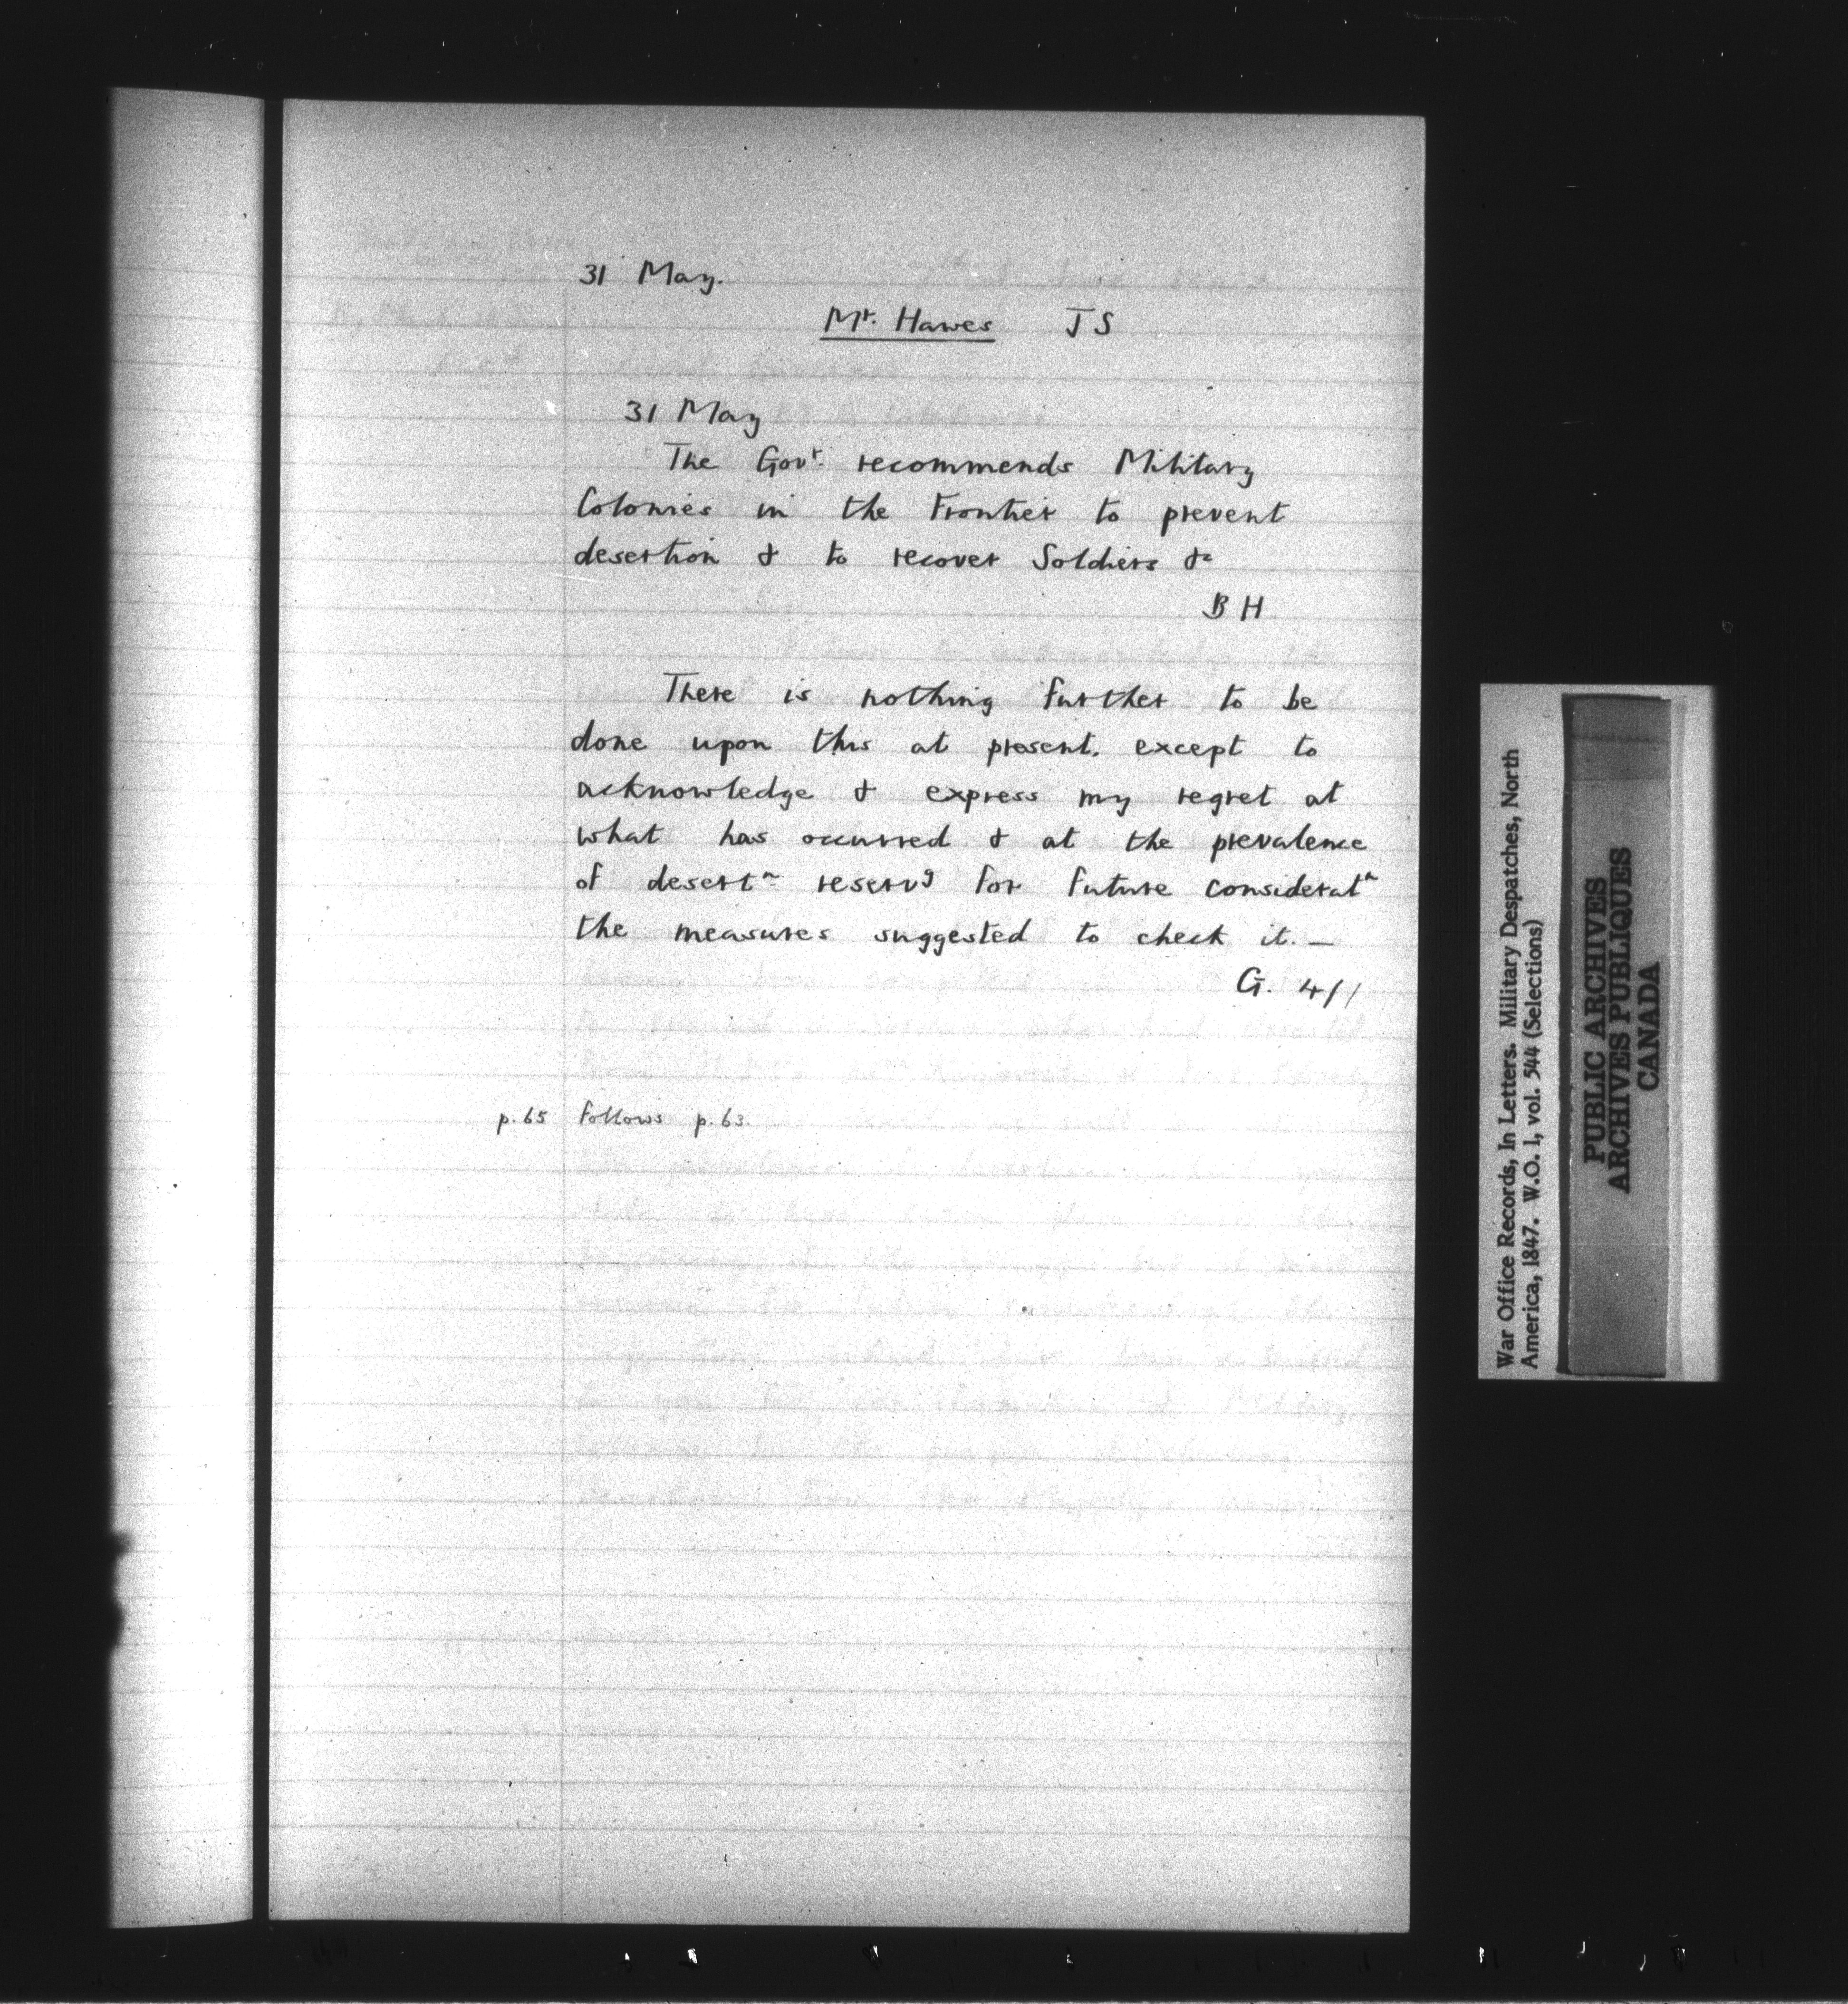 31 May.
Mr. Hawes JS
31 May
The Govr. recommends Military
Colonies in the Frontier to prevent
desertion & to recover Soldiers &c
BH
There is nothing further to be
done upon this at present. except to
acknowledge & express my regret at
what has occurred & at the prevalence
of desertn. reservg for future consideratn
the measures suggested to check it. —
G. 4/1
p. 65 follows p. 63.
War Office Records, In Letters. Military Despatches, North
America, 1847. W.O. 1, vol. 544 (Selections)
PUBLIC ARCHIVES
ARCHIVES PUBLIQUES
CANADA